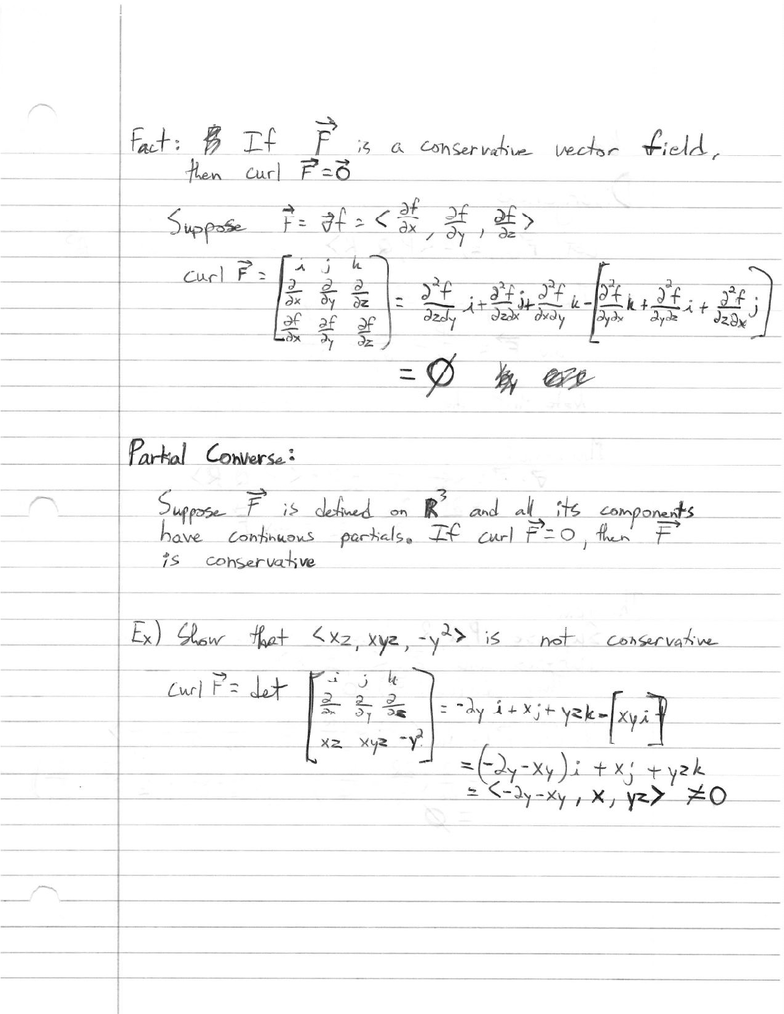 Fact: If F⃗ is a conservative vector field,
then curl F⃗ = 0⃗
Suppose F⃗ = ∇f = <∂f/∂x, ∂f/∂y, ∂f/∂z>
curl F⃗ = [i j k; ∂/∂x ∂/∂y ∂/∂z; ∂f/∂x ∂f/∂y ∂f/∂z] = ∂²f/∂z∂y i + ∂²f/∂z∂x j + ∂²f/∂x∂y k - [∂²f/∂y∂x k + ∂²f/∂y∂z i + ∂²f/∂z∂x j]
= 0
Partial Converse:
Suppose F⃗ is defined on ℝ³ and all its components
have continuous partials. If curl F⃗ = 0, then F⃗
is conservative
Ex) Show that <xz, xyz, -y²> is not conservative
curl F⃗ = det [i j k; ∂/∂x ∂/∂y ∂/∂z; xz xyz -y²] = -2y i + xj + yzk - [xyi]
= (-2y-xy)i + xj + yzk
= <-2y-xy, x, yz> ≠ 0